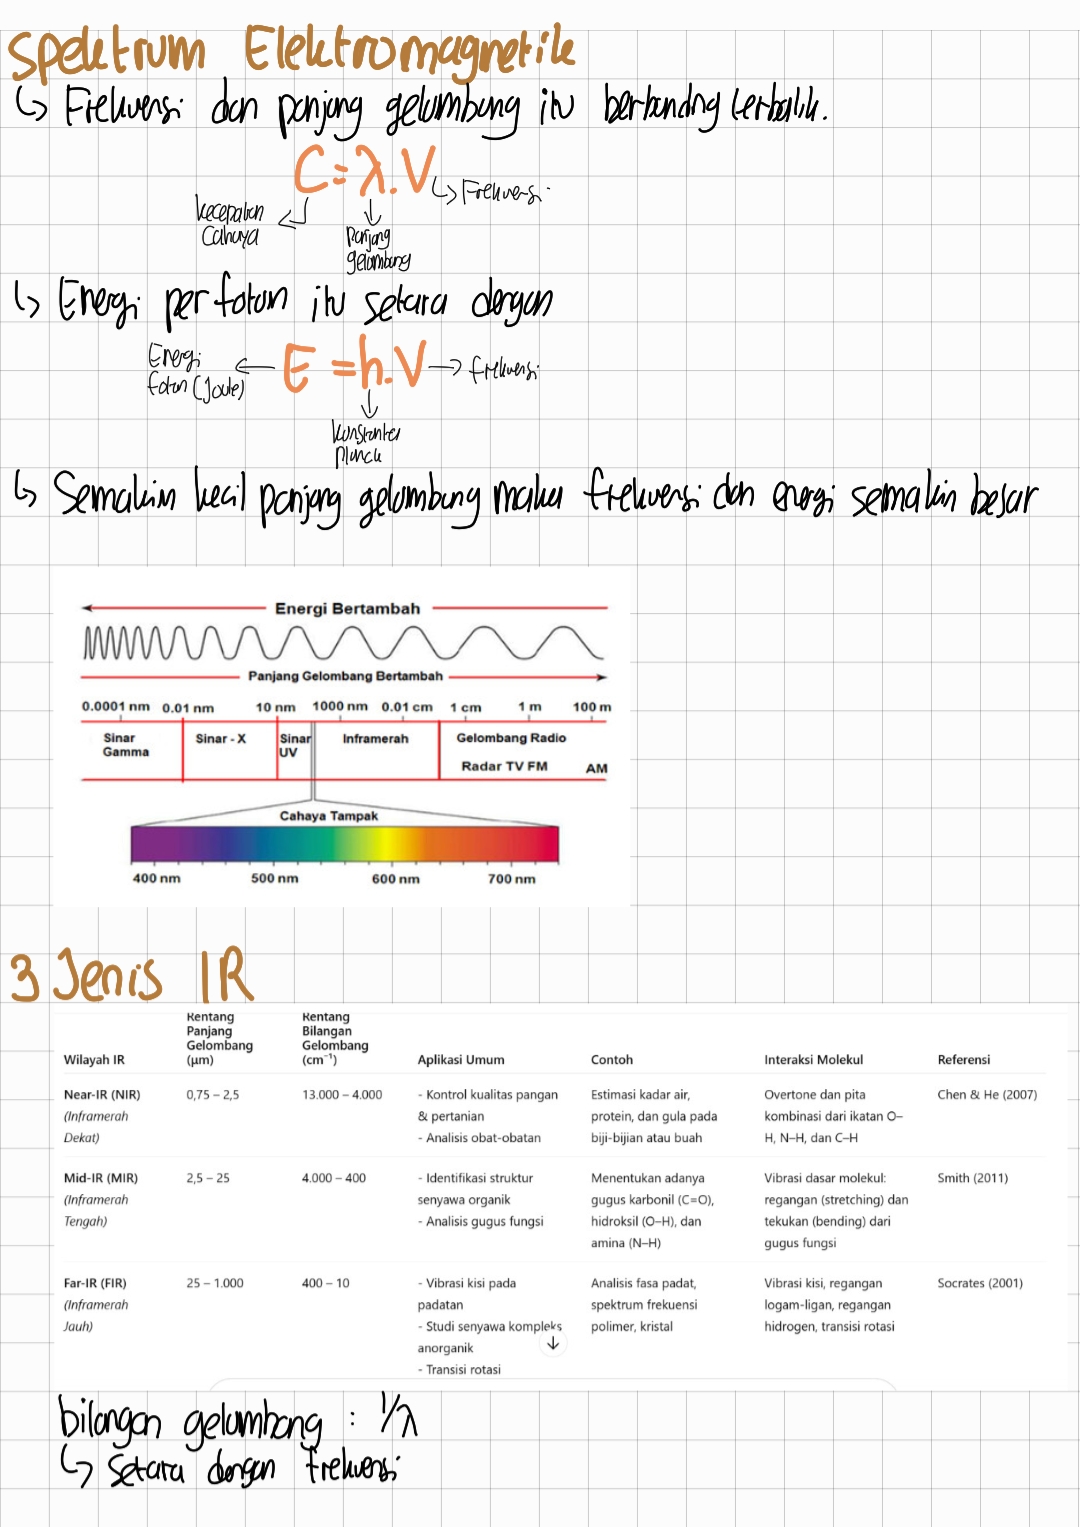 Spektrum Elektromagnetik
↳ Frekuensi dan panjang gelombang itu berbanding terbalik.
C = λ . V
↳ Frekuensi
kecepatan
Cahaya
panjang
gelombang
↳ Energi per foton itu setara dengan
E = h . V
Energi
foton (Joule)
frekuensi
konstanta
Planck
↳ Semakin kecil panjang gelombang maka frekuensi dan energi semakin besar
Energi Bertambah
Panjang Gelombang Bertambah
0.0001 nm 0.01 nm 10 nm 1000 nm 0.01 cm 1 cm 1 m 100 m
Sinar Gamma
Sinar - X
Sinar UV
Inframerah
Gelombang Radio
Radar TV FM AM
Cahaya Tampak
400 nm 500 nm 600 nm 700 nm
3 Jenis IR
Wilayah IR
Rentang Panjang Gelombang (μm)
Rentang Bilangan Gelombang (cm⁻¹)
Aplikasi Umum
Contoh
Interaksi Molekul
Referensi
Near-IR (NIR)
(Inframerah
Dekat)
0,75 – 2,5
13.000 – 4.000
- Kontrol kualitas pangan
& pertanian
- Analisis obat-obatan
Estimasi kadar air,
protein, dan gula pada
biji-bijian atau buah
Overtone dan pita
kombinasi dari ikatan O–
H, N–H, dan C–H
Chen & He (2007)
Mid-IR (MIR)
(Inframerah
Tengah)
2,5 – 25
4.000 – 400
- Identifikasi struktur
senyawa organik
- Analisis gugus fungsi
Menentukan adanya
gugus karbonil (C=O),
hidroksil (O–H), dan
amina (N–H)
Vibrasi dasar molekul:
regangan (stretching) dan
tekukan (bending) dari
gugus fungsi
Smith (2011)
Far-IR (FIR)
(Inframerah
Jauh)
25 – 1.000
400 – 10
- Vibrasi kisi pada
padatan
- Studi senyawa kompleks
anorganik
- Transisi rotasi
Analisis fasa padat,
spektrum frekuensi
polimer, kristal
Vibrasi kisi, regangan
logam-ligan, regangan
hidrogen, transisi rotasi
Socrates (2001)
bilangan gelombang : 1/λ
↳ Setara dengan frekuensi